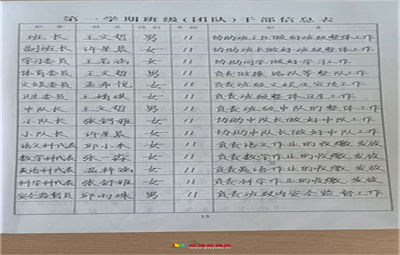 第一学期班级(团队)干部信息表
职务 姓名 性别 年龄 职责
班长 王文哲 男 11 协助班主任做好班级整体工作
副班长 许星晨 女 11 协助班长做好班级整体工作
学习委员 王若涵 女 11 协助同学做好学习工作
体育委员 王文哲 男 11 负责做操、跑队等整队工作
文娱委员 女 11 负责班级文娱及宣传工作
卫生委员 王靖琪 女 11 负责班级整体卫生工作
中队长 王文哲 男 11 负责班级中队的整体工作
小队长 张舒雅 女 11 协助中队长做好中队工作
小队长 许星晨 女 11 协助中队长做好中队工作
语文科代表 邱小木 女 11 负责语文作业的收缴、发放
数学科代表 张一 女 11 负责数学作业的收缴、发放
英语科代表 温梓涵 女 11 负责英语作业的收缴、发放
科学科代表 张舒雅 女 11 负责科学作业的收缴、发放
安全监督员 邱 男 11 负责班级内安全监督工作
13